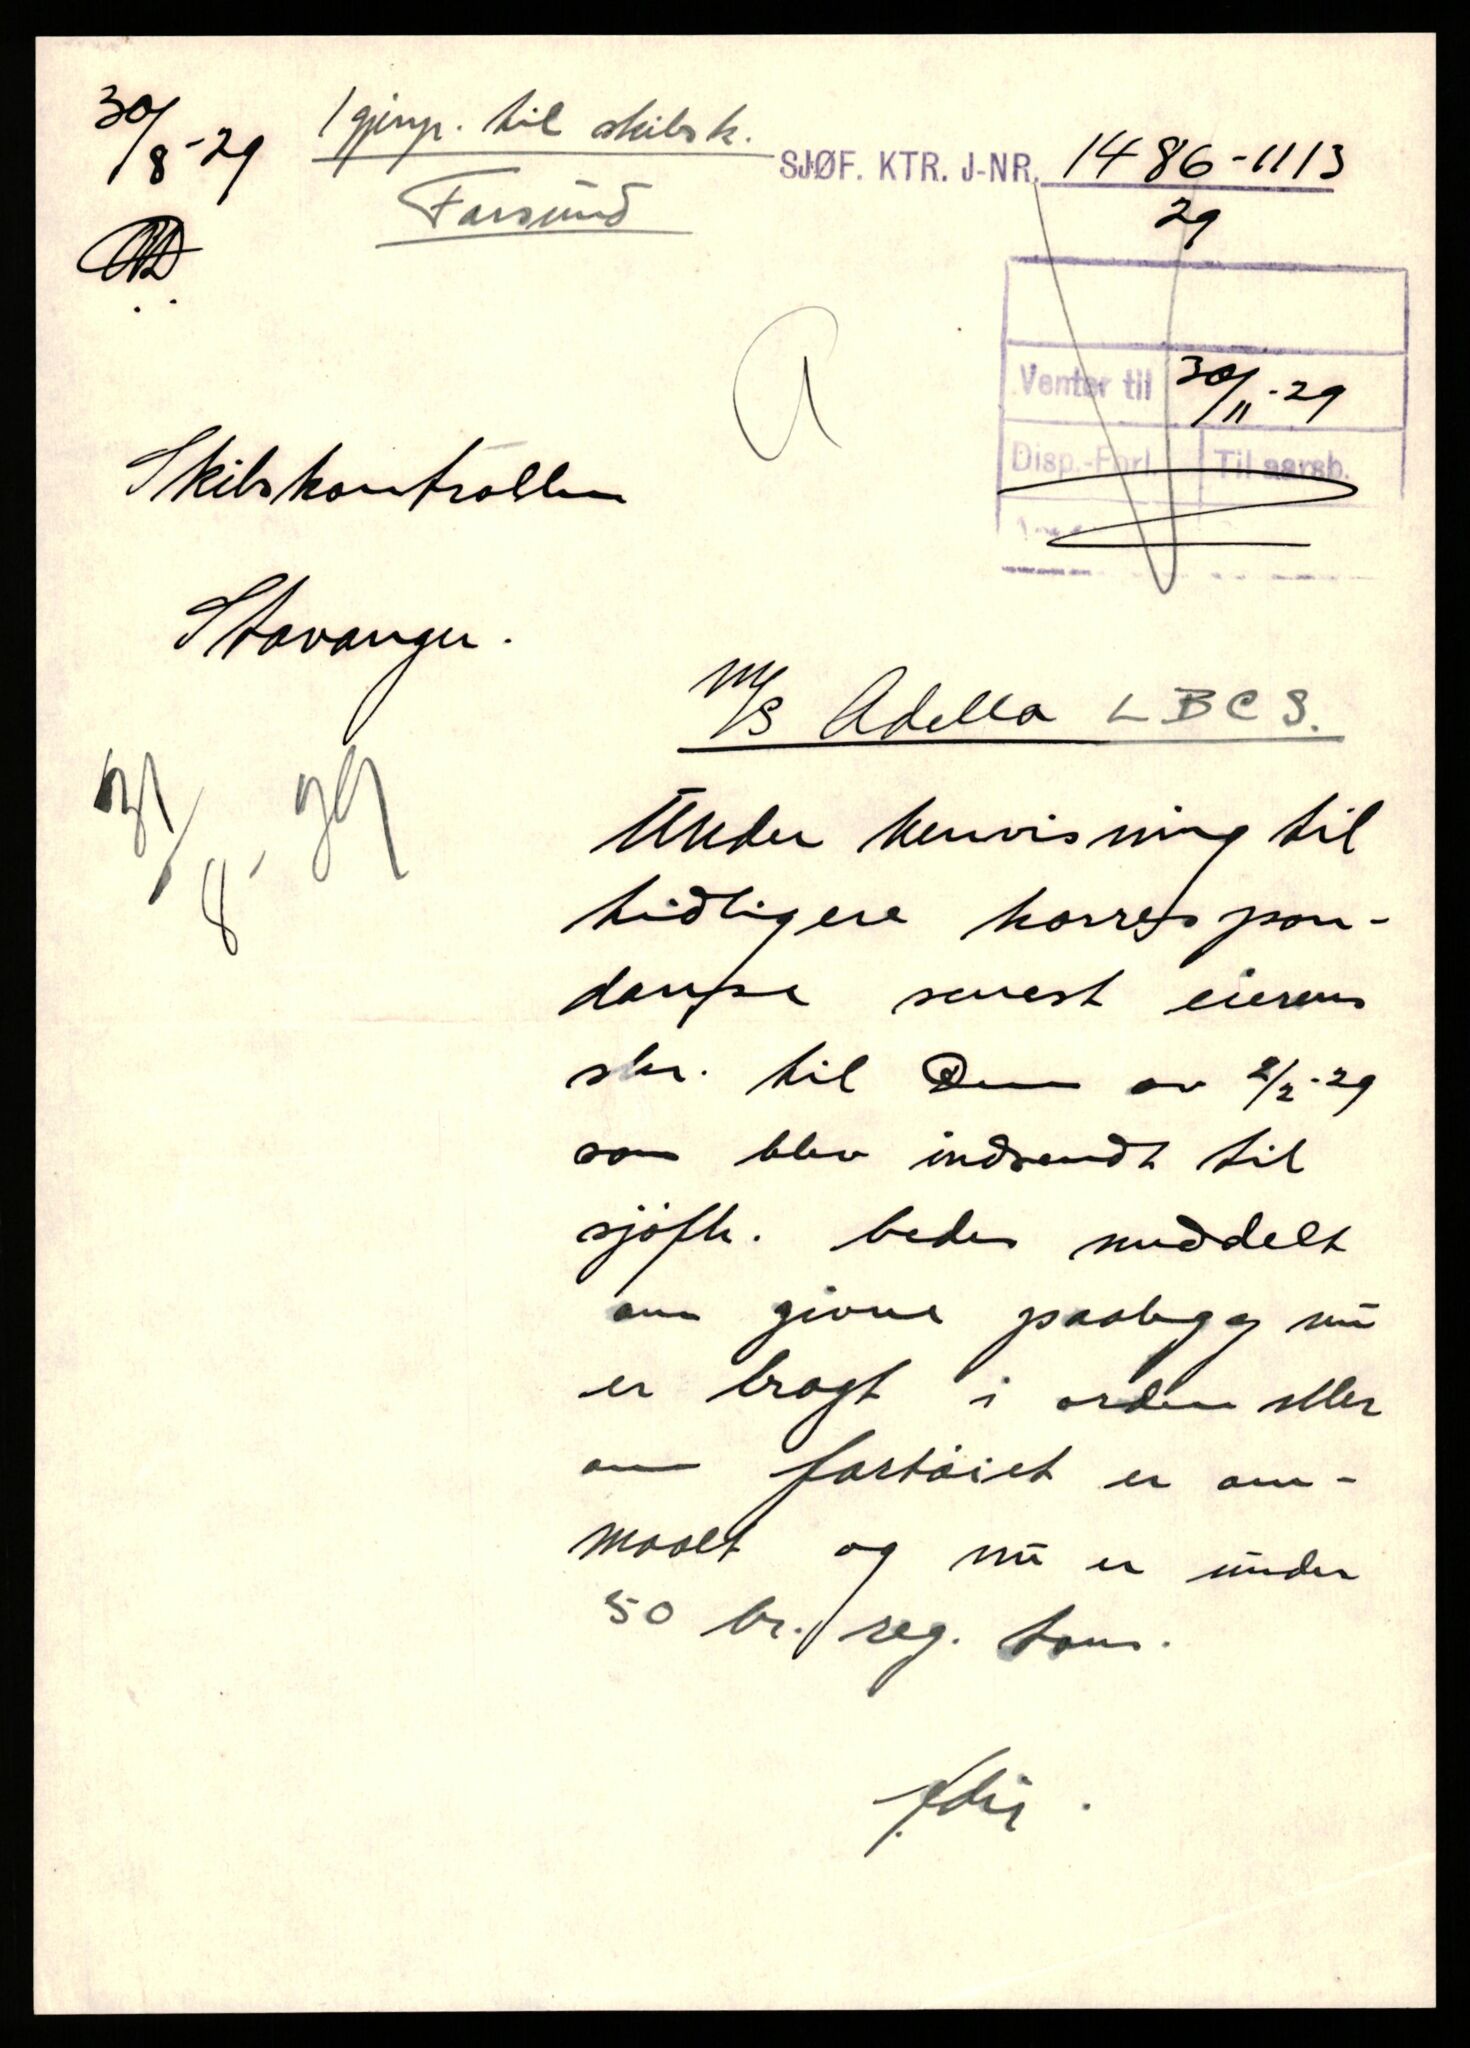 30/8-29
1 gjenp. til skibsk.
Farsund
SJØF. KTR. J-NR. 1486-1113
29
A
Venter til 30/11-29
Disp.-Forl. Til aarsb.
Skibskontrollen
Stavanger.
M/S Adella LBCS.
31/8-29
Under henvisning til
tidligere korrespon-
danse senest eierens
skr. til Dem av 2/2-29
som blev indsendt til
sjöfk. bedes meddelt
om givne paalegg nu
er bragt i orden eller
om fartöiet er om-
maalt og nu er under
50 br. reg. tons.